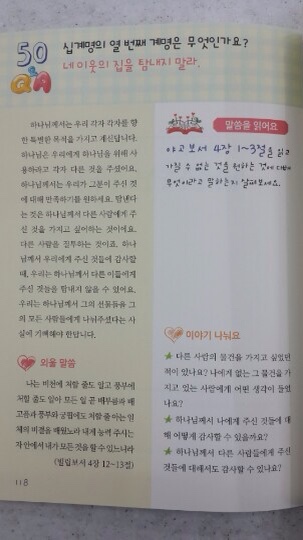 50
Q&A
십계명의 열 번째 계명은 무엇인가요?
네 이웃의 집을 탐내지 말라.
하나님께서는 우리 각자 각자를 향
한 특별한 목적을 가지고 계신답니다.
하나님은 우리에게 하나님을 위해 사
용하라고 각자 다른 것을 주셨어요.
하나님께서는 우리가 그분이 주신 것
에 대해 만족하기를 원하세요. 탐낸다
는 것은 하나님께서 다른 사람에게 주
신 것을 가지고 싶어하는 것이에요.
다른 사람을 질투하는 것이죠. 하나
님께서 우리에게 주신 것들에 감사할
때, 우리는 하나님께서 다른 이들에게
주신 것들을 탐내지 않을 수 있어요.
우리는 하나님께서 그의 선물들을 그
의 모든 사람들에게 나눠주셨다는 사
실에 기뻐해야 한답니다.
외울 말씀
나는 비천에 처할 줄도 알고 풍부에
처할 줄도 알아 모든 일 곧 배부름과 배
고픔과 풍부와 궁핍에도 처할 줄 아는 일
체의 비결을 배웠노라 내게 능력 주시는
자 안에서 내가 모든 것을 할 수 있느니라
(빌립보서 4장 12~13절)
118
말씀을 읽어요
야고보서 4장 1~3절을 읽고
가질 수 없는 것을 원하는 것에 대해
무엇이라고 말하는지 살펴보세요.
이야기 나눠요
★ 다른 사람의 물건을 가지고 싶었던
적이 있나요? 나에게 없는 그 물건을 가
지고 있는 사람에게 어떤 생각이 들었
나요?
★ 하나님께서 나에게 주신 것들에 대
해 어떻게 감사할 수 있을까요?
★ 하나님께서 다른 사람들에게 주신
것들에 대해서도 감사할 수 있나요?